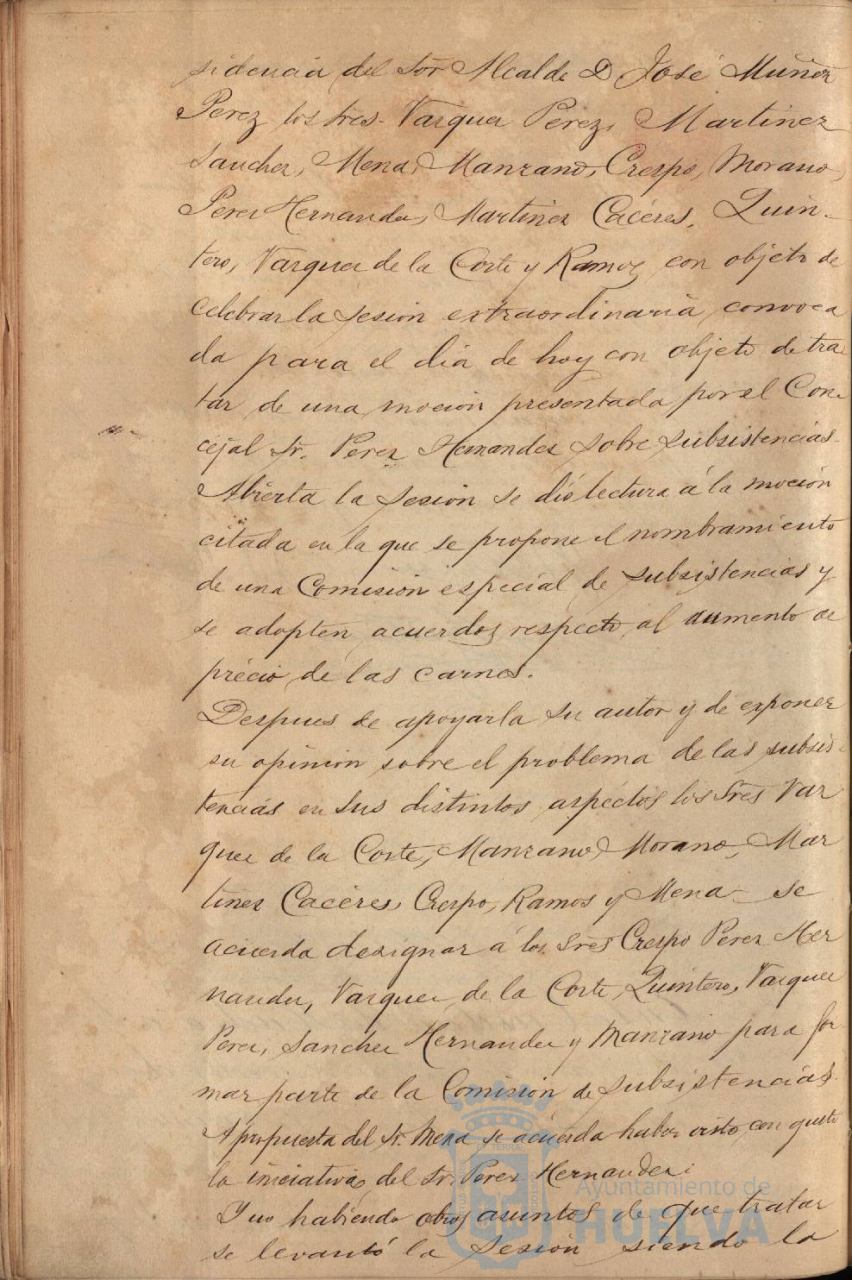 sidencia del Sor Alcalde D José Muñoz
Perez los Sres. Vazquez Pérez, Martinez
Sanchez, Mena, Manzano, Crespo, Morano,
Perez Hernandez, Martinez Cacéres, Quin-
tero, Vazquez de la Corte y Ramos con objeto de
celebrar la sesion extraordinaria convoca
da para el dia de hoy con objeto de tra
tar de una mocion presentada por el Con-
cejal Sr. Perez Hernandez sobre subsistencias.
Abierta la sesion se dió lectura á la mocion
citada en la que se propone el nombramiento
de una Comision especial de subsistencias y
se adopten acuerdos respecto al aumento de
precio de las carnes.
Despues de apoyarla su autor y de exponer
su opinion sobre el problema de las subsis-
tencias en sus distintos aspectos los Sres Vaz
quez de la Corte, Manzano, Morano, Mar
tinez Cacéres, Crespo, Ramos y Mena se
acuerda designar á los Sres Crespo Perez Her
nandez, Vazquez de la Corte, Quintero, Vazquez
Perez, Sanchez Hernandez y Manzano para for
mar parte de la Comision de subsistencias.
A propuesta del Sr. Mena se acuerda haber visto con gusto
la iniciativa del Sr. Perez Hernandez.
Y no habiendo otros asuntos de que tratar
se levantó la Sesion siendo la
Ayuntamiento de
HUELVA